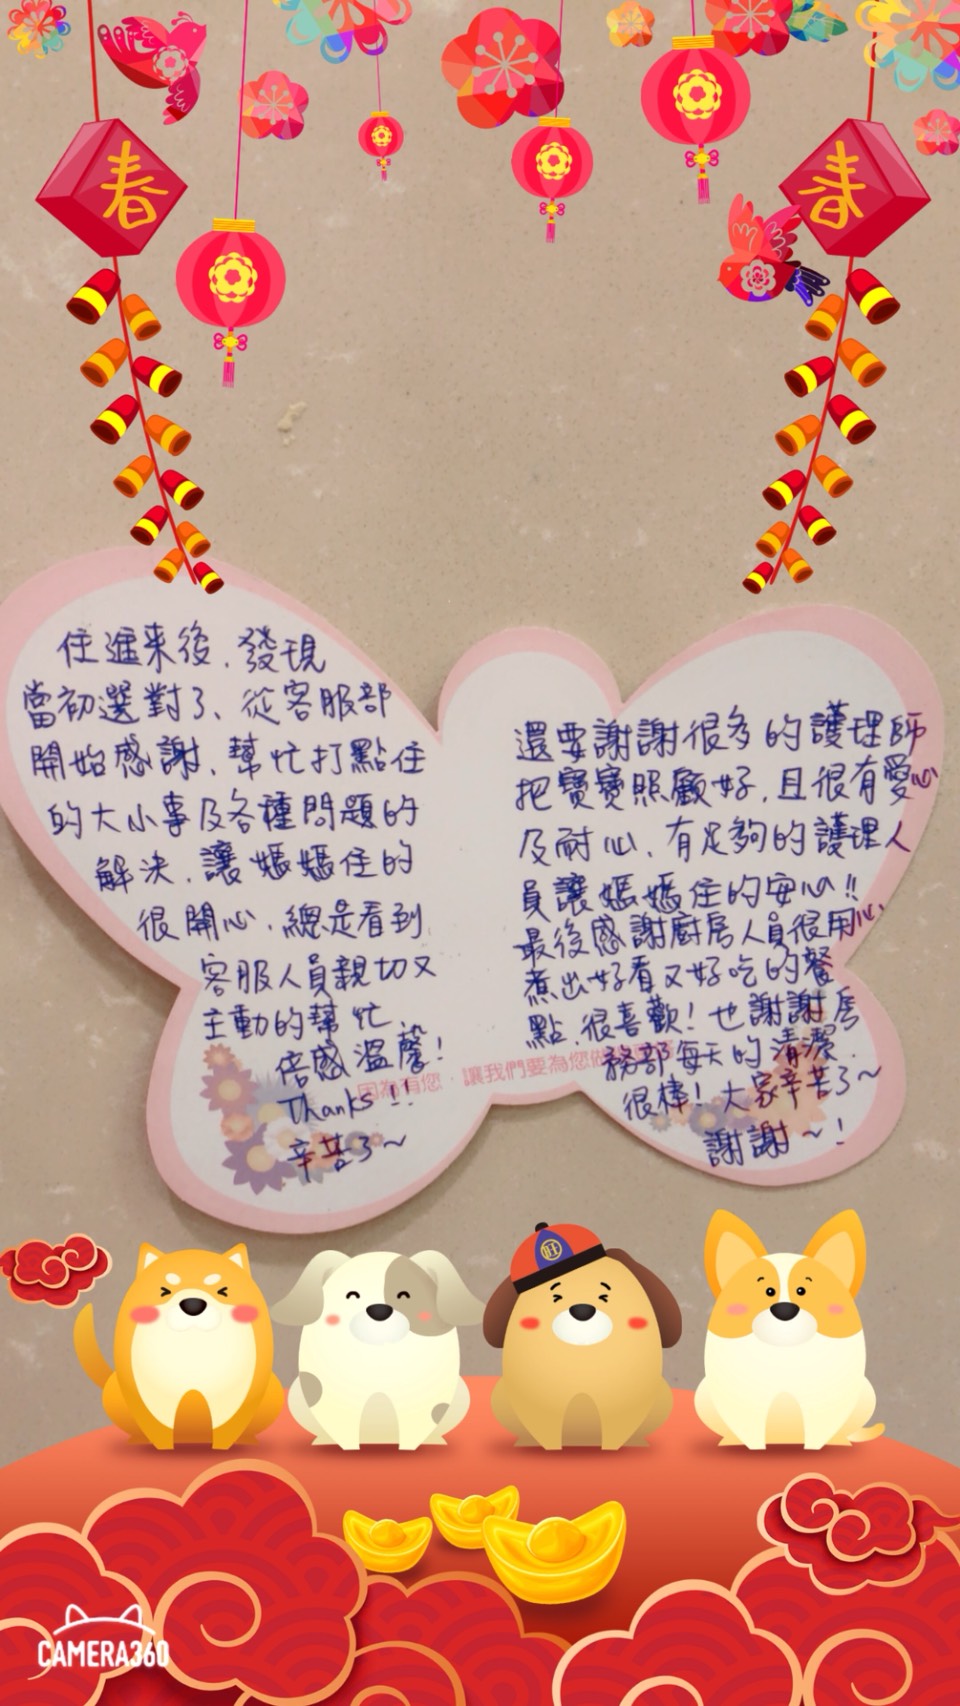 春
春
住進来後，發現
當初選對了、從客服部
開始感謝，幫忙打點住
的大小事及各種問題的
解決，讓媽媽住的
很開心，總是看到
客服人員親切又
主動的幫忙，
倍感溫馨！
Thanks!!
辛苦了~
還要謝謝很多的護理師
把寶寶照顧好，且很有愛心
及耐心、有足夠的護理人
員讓媽媽住的安心!!
最後感謝廚房人員很用心，
煮出好看又好吃的餐
點，很喜歡！也謝謝房
務部每天的清潔，
很棒！大家辛苦了~
謝謝~！
因為有您，讓我們要為您做
旺
CAMERA360